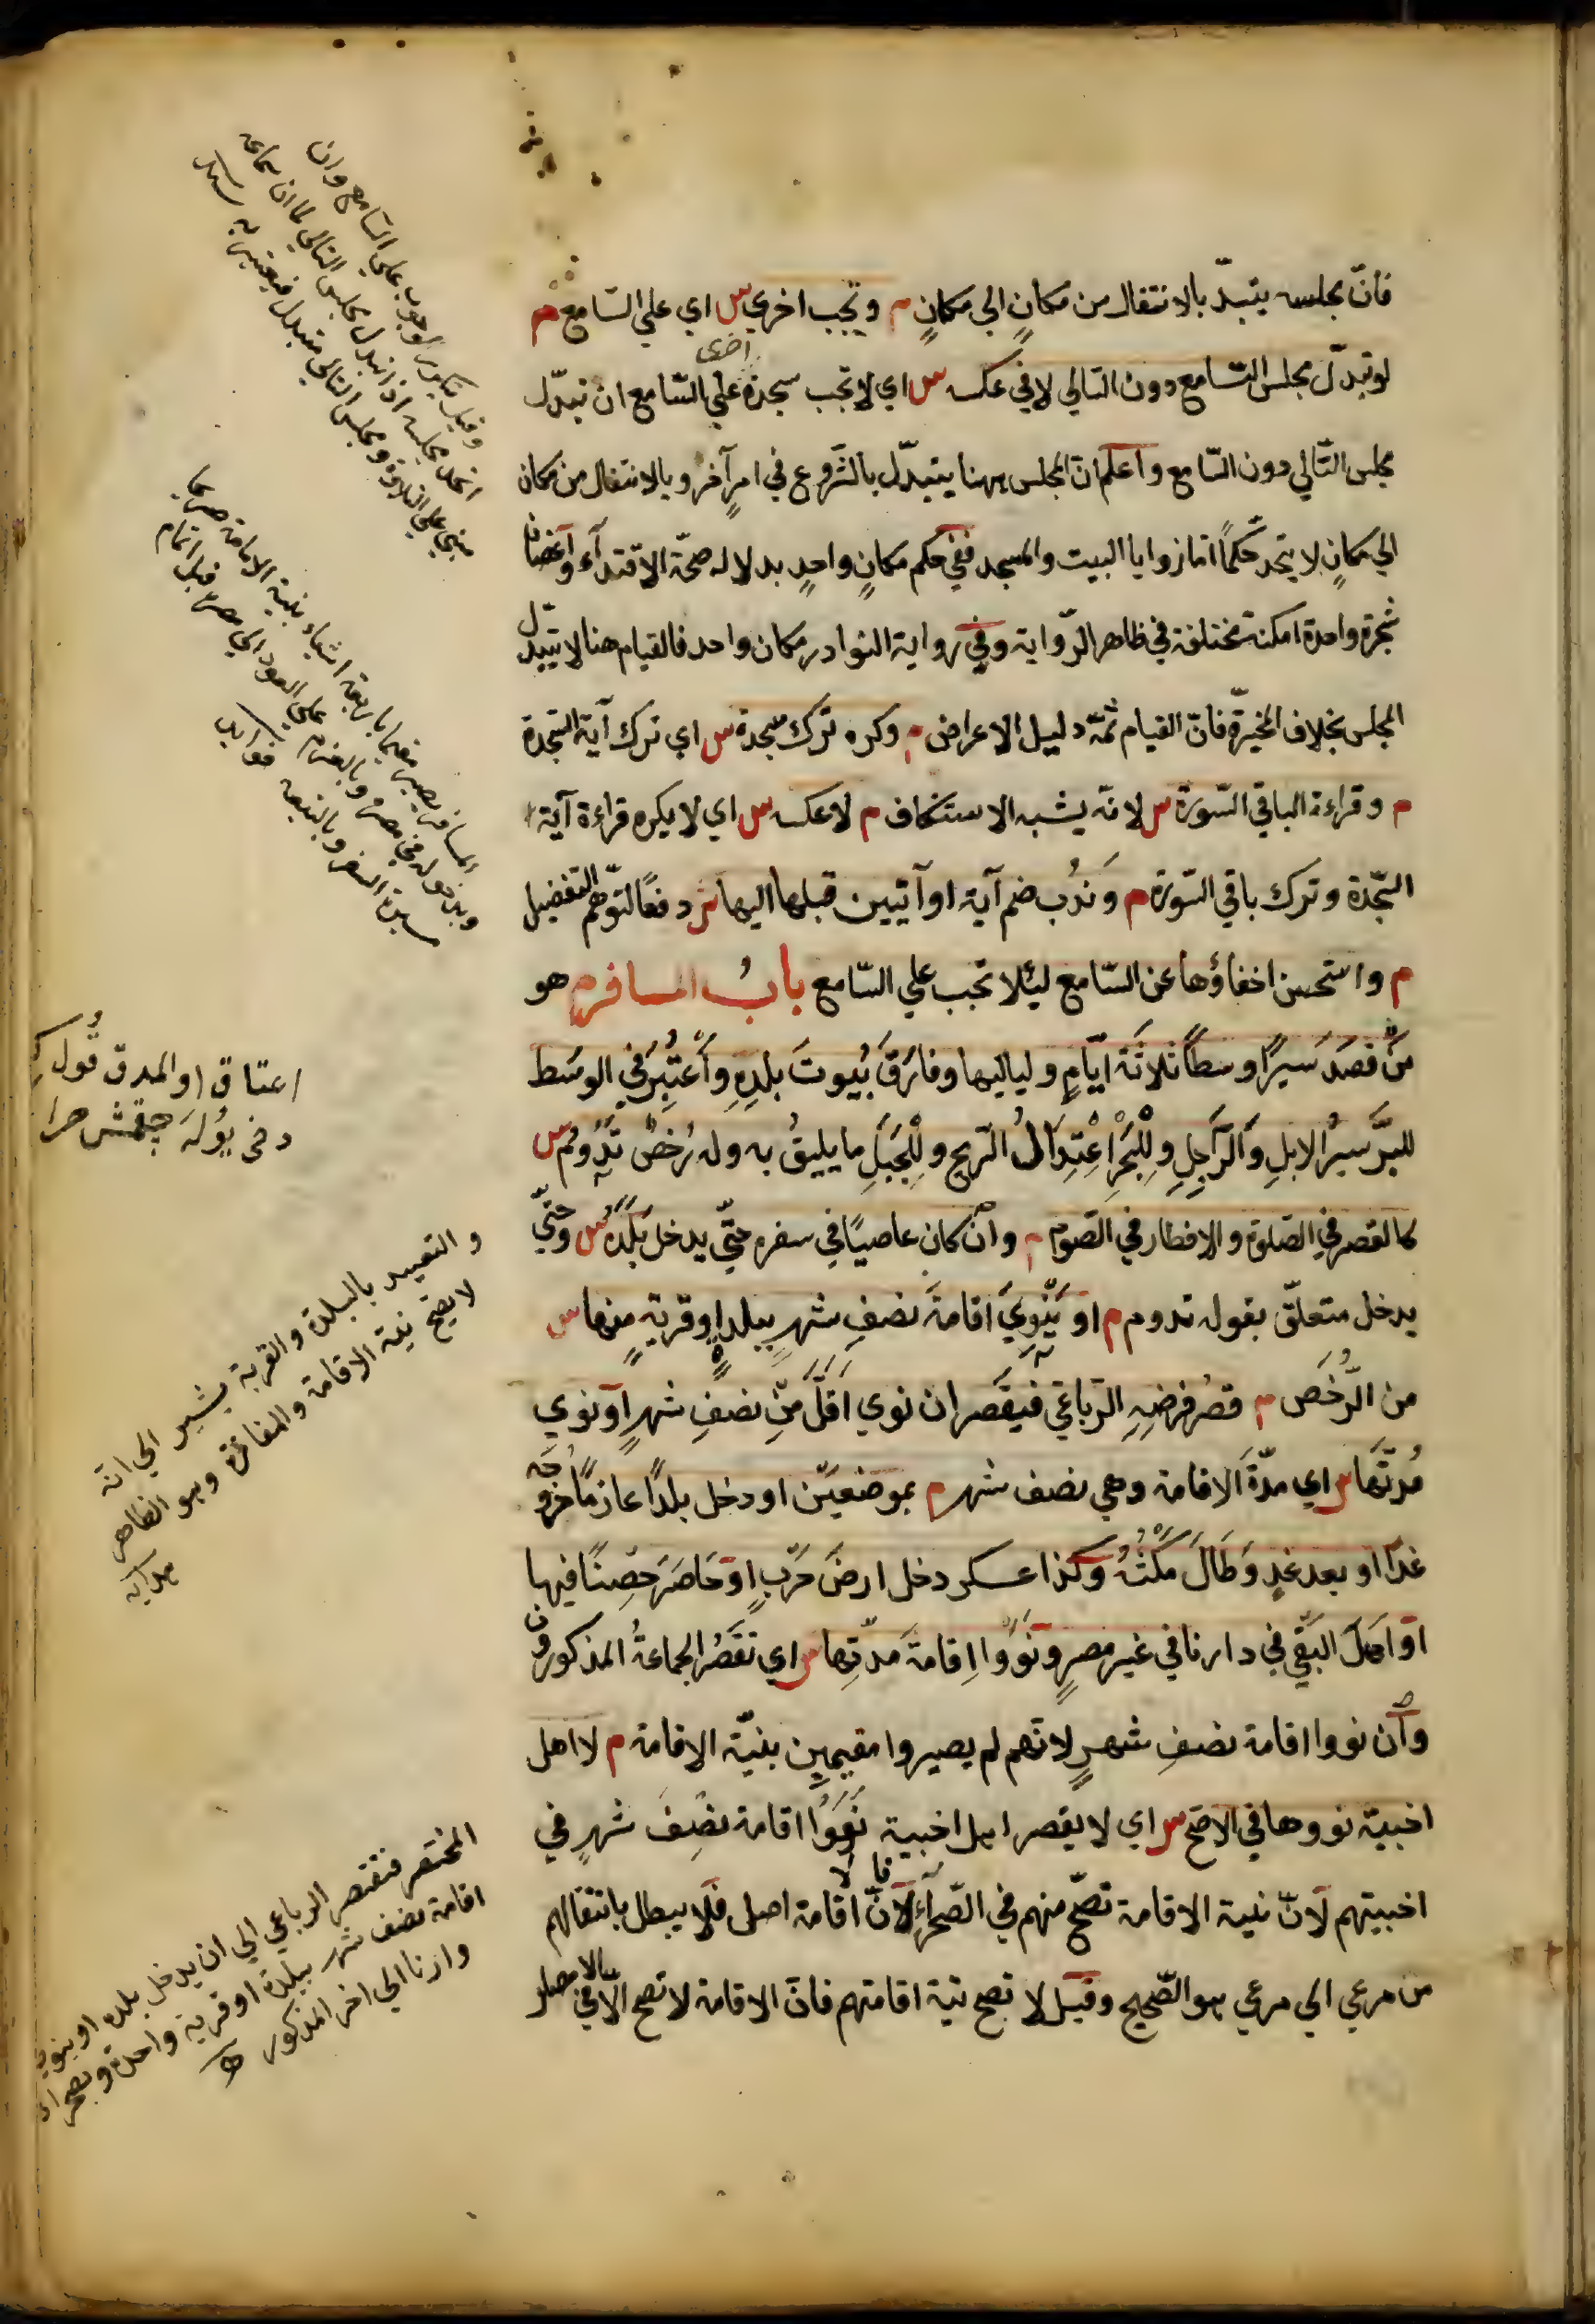 فانّ مجلسه يتبدّل بالانتقال من مكانٍ الي مكانٍ م وتجب اخري س اي علي السّامع م
لو تبدّل مجلس السّامع دون التالي لا في عكسه س اي لا تجب سجدة اخرى علي السّامع ان تبدّل
مجلس التّالي دون السّامع واعلم انّ المجلس ههنا يتبدّل بالشّروع في امرٍ آخر وبالانتقال من مكان
الي مكانٍ لا يتّحد حكمًا امّا زوايا البيت والمسجد ففي حكم مكانٍ واحدٍ بدلالة صحّة الاقتدآء واغصان
شجرة واحدة امكنة مختلفة في ظاهر الرّواية وفي رواية النوادر مكان واحد فالقيام هنا لا يتبدّل
المجلس بخلاف المخيّرة فانّ القيام ثمّة دليل الاعراض م وكره ترك سجدة س اي ترك آية السّجدة
م وقراءة الباقي السّورة س لانّه يشبه الاستنكاف م لا عكسه س اي لا يكره قراءة آية
السّجدة وترك باقي السّورة م وندُب ضم آية او آتيين قبلها اليها س دفعًا لتوهّم التفضيل
م واستحسن اخفاؤها عن السّامع ليئلا تجب علي السّامع بابُ المسافر م هو
مَنْ قصَدَ سَيرًا وسطًا ثلاثَةَ ايّامٍ ولياليها وفارَقَ بُيوتَ بلدِهِ وَاُعْتُبِرَ في الوسَط
للبرّ سيرُ الابلِ وَالرّاجِلِ ولِلْبَحْرِ اعْتِدَالُ الرّيح ولِلْجَبَلِ ما يليقُ به وله رُخصٌ تدُومُ س
كالقصر في الصّلوة والافطار في الصّوم م وانْ كان عاصيًا في سفره حتّي يدخل بَلَدَهُ س وحتّي
يدخل متعلّق بقوله تدوم م او يَنْوِيَ اقامةَ نصْفِ شهرٍ ببلدٍ او قريةٍ منها س
من الرُّخَص م قصْرُ فرضِهِ الرّباعيّ فيقصَر ان نوي اَقلّ مِنْ نصْفِ شهرٍ اَو نوي
مُدتَّها س اي مدّةَ الاقامة وهي نصف شهر م بموضعيْن او دخل بلدًا عازمًا خروجَه
غدًا او بعد غدٍ وَطَالَ مَكْثُهُ وكذا عسكر دخل ارضَ حَرْبٍ اوْ حَاصَرَ حِصْنًا فيها
اوْ اهَلَ البَغْي في دارنا في غير مصرٍ ونَوَوْا اِقامةَ مدّتِها س اي تقصُر الجماعةُ المذكورون
وان نووا اقامة نصْفِ شهرٍ لانّهم لم يصيروا مقيمين بنيّة الاقامة م لا اهل
اخبية نووها في الاصحّ س اي لا يقصر اهل اخبية نَوَوْا اقامة نصْفَ شهرٍ في
اخبيتهم لانّ نية الاقامة تصحّ منهم في الصّحرآءِ لانّ الاقامة اصل فلا يبطل بانتقالهم
من مرعي الي مرعي هو الصّحيح وقيل لا تصح نية اقامتهم فانّ الاقامة لا تصح الّا في الامصار
وقيل يتكرر الوجوب علي السّامع وان
اتحد مجلسه اذا تبدل مجلس التالي لما ان سماعه
مبني علي التلاوة ومجلس التالي متبدل فيعتبر به
المسافر يصير مقيما باربعة اشياء بنية الاقامة صريحا
وبدخوله في مصره وبالعزم علي العود الي مصره قبل اتمام
مسيرة السفر وبالتبعية
اعتاق او المدق قول
والتقييد بالبلدة والقرية يشير الي انّه
لا يصح نية الاقامة والمفازة وهو الظاهر
هدايه
المختصر فيقتصر الرباعي الي ان يدخل بلده او ينوي
اقامة نصف شهر ببلدة او قرية واحدة وبصحراء
دارنا الي اخر المذكور